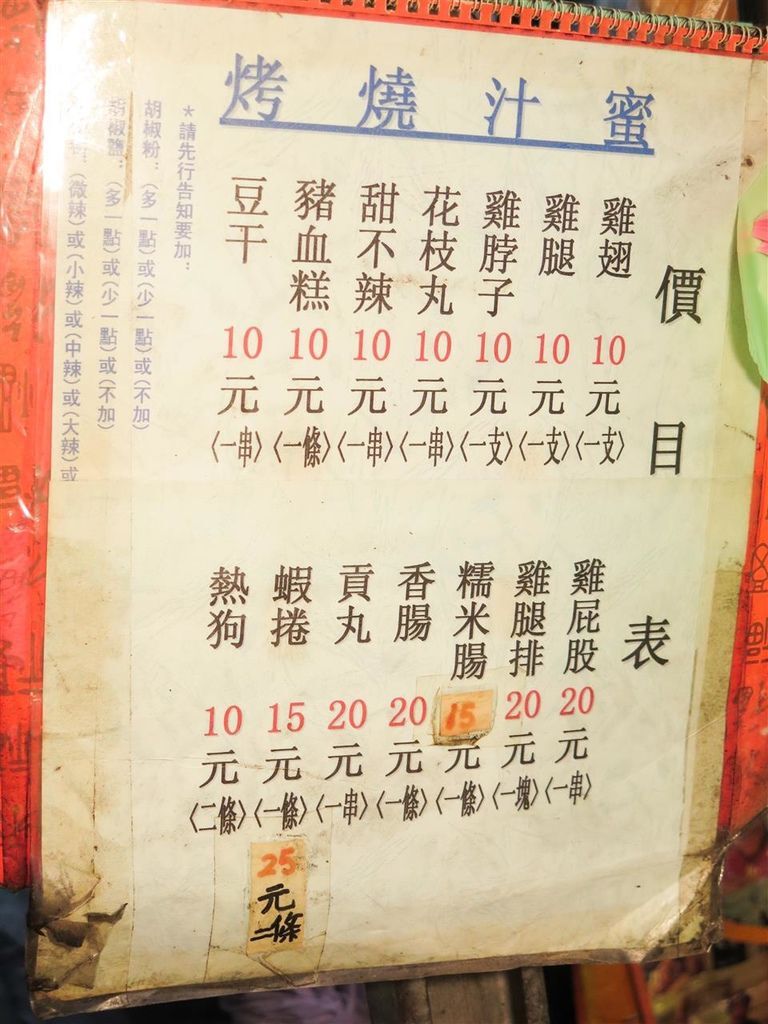 蜜汁燒烤
價目表
雞翅10元〈一支〉
雞腿10元〈一支〉
雞脖子10元〈一支〉
花枝丸10元〈一串〉
甜不辣10元〈一串〉
豬血糕10元〈一條〉
豆干10元〈一串〉
雞屁股20元〈一串〉
雞腿排20元〈一塊〉
糯米腸15元〈一條〉
香腸20元〈一條〉
貢丸20元〈一串〉
蝦捲15元〈一條〉
25元二條
熱狗10元〈二條〉
*請先行告知要加：
胡椒粉：(多一點)或(少一點)或(不加)
胡椒鹽：(多一點)或(少一點)或(不加)
(微辣)或(小辣)或(中辣)或(大辣)或